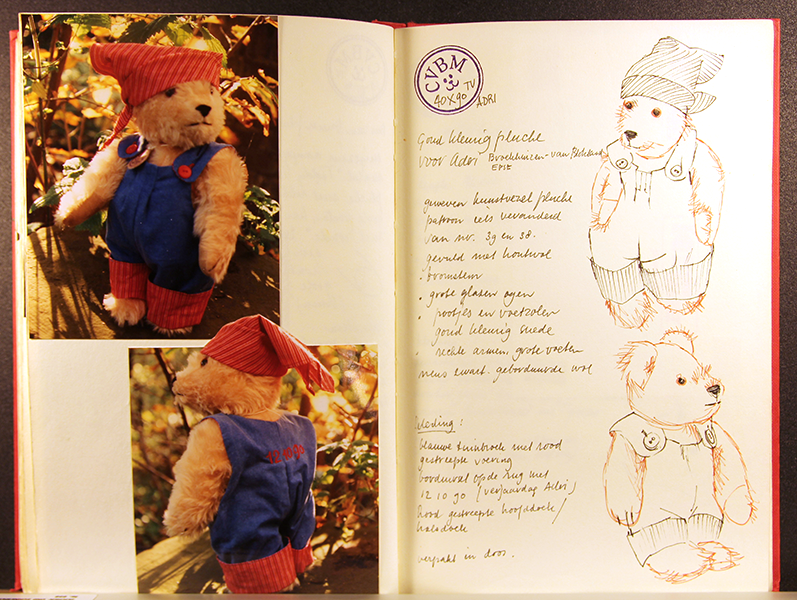 CVBM
40x90 TV
ADRI
Goud kleurig pluche
voor Adri Broekhuizen-van
EPSE
geweven kunstvezel pluche
patroon iets veranderd
van nr. 39 en 38.
gevuld met houtwol
. bromstem
. grote glazen ogen
. pootjes en voetzolen
goud kleurig suede
. rechte armen, grote voeten
neus zwart. geborduurde wol
kleding:
blauwe tuinbroek met rood
gestreepte voering
borduursel op de rug met
12 10 90 (verjaardag Adri)
Rood gestreepte hoofddoek/
halsdoek
verpakt in doos.
12 10 90